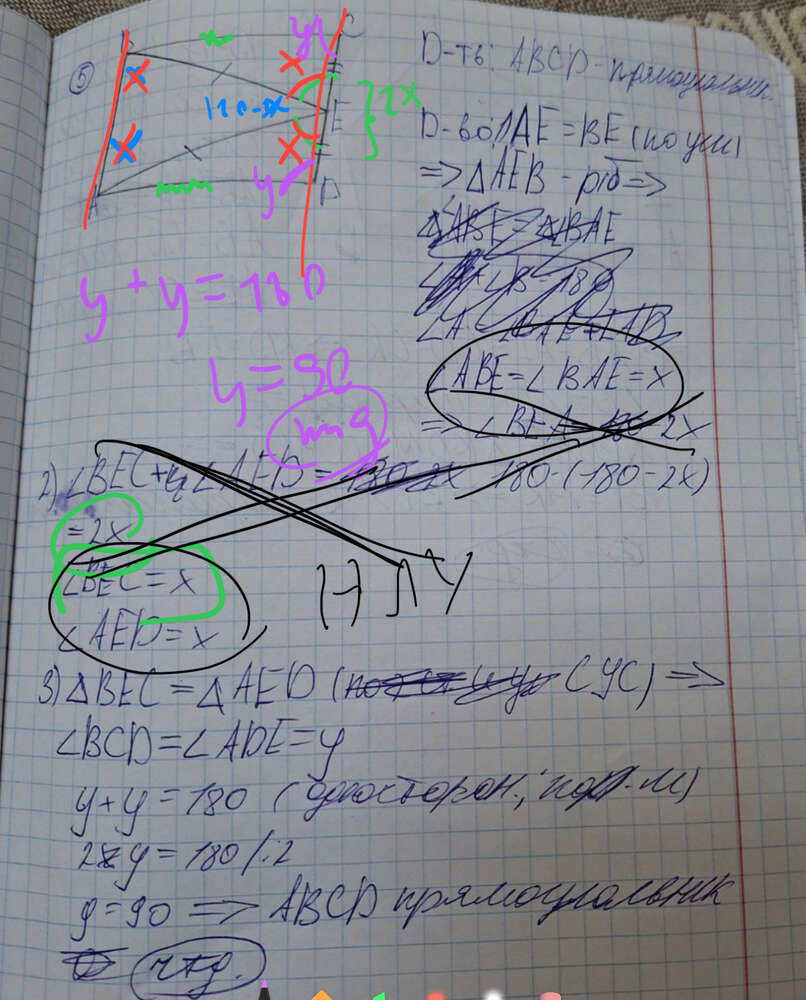 5
B
C
y
x
x
180-2x
E
2x
x
x
y
A
D
y + y = 180
y = 90
чтд
Д-ть: ABCD - прямоугольник.
Д-во: 1) AE = BE (по усл)
=> △AEB - р/б =>
∠ABE = ∠BAE = x
=> ∠BEA = 180 - 2x
2) ∠BEC + ∠AED = 180 - (180 - 2x)
= 2x
∠BEC = x
∠AED = x
НЛУ
3) △BEC = △AED (СУС) =>
∠BCD = ∠ADE = y
y + y = 180 (односторон., пар-м)
2y = 180 /:2
y = 90 => ABCD прямоугольник
чтд.